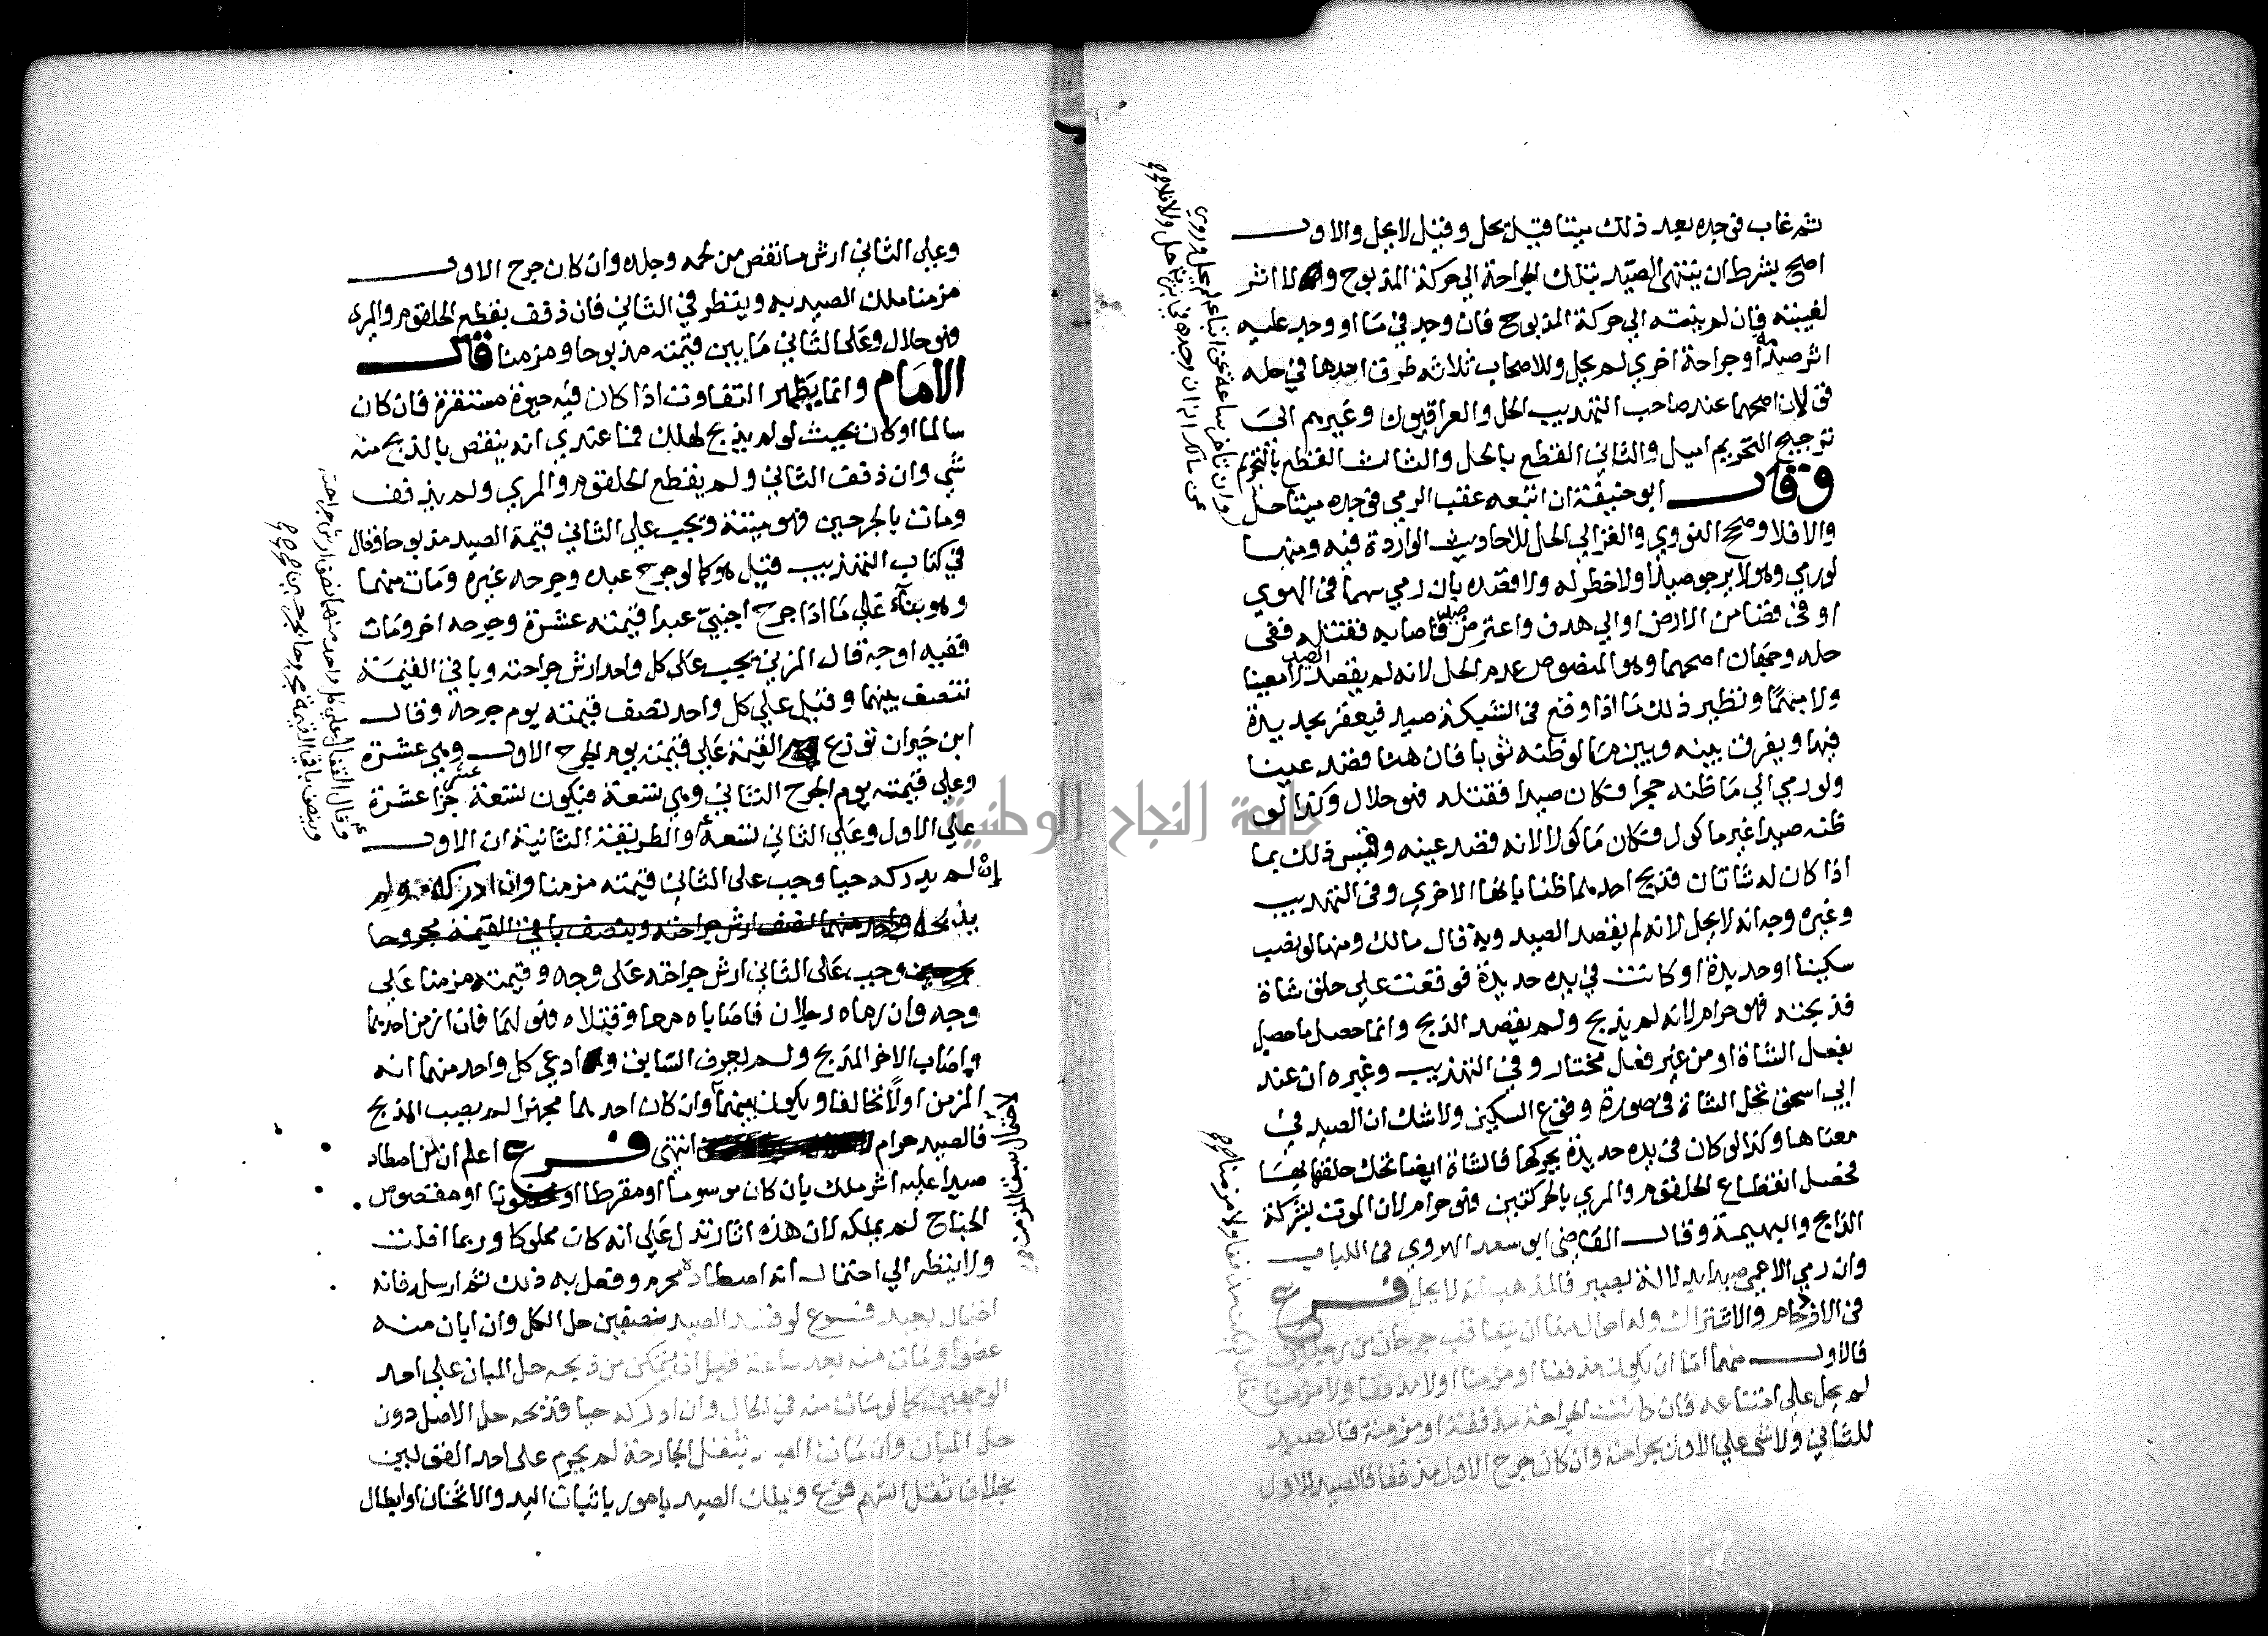 ثم غاب فوجده بعد ذلك ميتا قيل يحل وقيل لا يحل والاول
اصح بشرط ان ينتهي الصيد بتلك الجراحة الي حركة المذبوح ولا اثر
لغيبته فان لم ينته الي حركة المذبوح فان وجد في ما او وجد عليه
اثر صدمة او جراحة اخري لم يحل وللاصحاب ثلاثه طرق احدها في حله
قولان اصحهما عند صاحب التهذيب الحل والعراقيون وغيرهم الى
ترجيح التحريم اميل والثاني القطع بالحل والثالث القطع بالتحريم
وقال ابو حنيفة ان اتبعه عقب الرمي فوجده ميتا حل
والا فلا وصحح النووي والغزالي الحل للاحاديث الواردة فيه ومنها
لو رمي وهو لا يرجو صيدا ولا خطر له ولا قصده بان رمي سهما في الهوي
او في فضا من الارض او الي هدف واعترض صيد فاصابه فقتله ففي
حله وجهان اصحهما وهو المنصوص عدم الحل لانه لم يقصد الصيد لا معينا
ولا مبهما ونظير ذلك ما اذا وقع في الشبكة صيد فيعقر بحديدة
فيها ويفرق بينه وبين ما لو ظنه ثوبا فان هنا قصد عينا
ولو رمي الي ما ظنه حجرا وكان صيدا فقتله فهو حلال وكذا لو
ظنه صيدا غير ماكول فكان ماكولا لانه قصد عينه وقيس ذلك بما
اذا كان له شاتان فذبح احدهما ظنا بانها الاخري وفي التهذيب
وغيره وجه انه لا يحل لانه لم يقصد الصيد وبه قال مالك ومنها لو نصب
سكينا او حديدة او كانت في يده حديدة فوقعت علي حلق شاة
فذبحته فهو حرام لانه لم يذبح ولم يقصد الذبح وانما حصل ما حصل
بفعل الشاة او من غير فعل مختار وفي التهذيب وغيره ان عند
ابي اسحق تحل الشاة في صورة وقوع السكين ولا شك ان الصيد في
معناها وكذا لو كان في يده حديدة يحركها فالشاة ايضا تحك حلقها بها
فحصل انقطاع الحلقوم والمري بالحركتين فهو حرام لان الموت بشركة
الذابح والبهيمة وقال القاضي ابو سعد الهروي في اللباب
وان رمي الاعمي صيدا بدلالة بصير فالمذهب انه لا يحل فرع
في الازدحام والاشتراك وله احوال منها ان يتعاقب جرحان من رجلين
فالاول منهما اما ان يكون مذففا او مزمنا او لا مذففا ولا مزمنا
لم يحل علي امتناعه فان كانت الجراحة مذففة او مزمنة فالصيد
للثاني ولا شي علي الاول بجراحته وان كان جرح الاول مذففا فالصيد للاول
وعلي
وعلي الثاني ارش ما نقص من لحمه وجلده وان كان جرح الاول
مزمنا ملك الصيد به وينظر في الثاني فان ذفف بقطع الحلقوم والمري
فهو حلال وعلى الثاني ما بين قيمته مذبوحا ومزمنا قال
الامام وانما يظهر التفاوت اذا كان فيه حيوة مستقرة فان كان
سالما او كان بحيث لو لم يذبح لهلك فما عندي انه ينقص بالذبح منه
شي وان ذفف الثاني ولم يقطع الحلقوم والمري ولم يذفف
ومات بالجرحين فهو ميتة ويجب علي الثاني قيمة الصيد مذبوحا وقال
في كتاب التهذيب قيل هو كما لو جرح عبده وجرحه غيره ومات منهما
وهو بناء علي ما اذا جرح اجنبي عبدا قيمته عشرة وجرحه اخر ومات
ففيه اوجه قال المزني يجب على كل واحد ارش جراحته وباقي القيمة
تنتصف بينهما وقيل علي كل واحد نصف قيمته يوم جرحه وقال
ابن خيران توزع القيمة علي قيمته يوم الجرح الاول وهي عشرة
وعلي قيمته يوم الجرح الثاني وهي تسعة فيكون تسعة عشر جزا عشرة
علي الاول وعلي الثاني تسعة والطريقة الثانية ان الاول
ان لم يدركه حيا وجب على الثاني قيمته مزمنا وان ادركه ولم
يذبحه واحد منهما نصف ارش جراحته وينصف باقي القيمة مجروحا
بجرحين وجب على الثاني ارش جراحته على وجه وقيمته مزمنا على
وجه وان رماه رجلان فاصاباه معا وقتلاه فهو لهما فان ازمن احدهما
واصاب الاخر المذبح ولم يعرف السابق وادعي كل واحد منهما انه
المزمن اولا تحالفا ويكون بينهما وان كان احدهما مجهزا لم يصيب المذبح
فالصيد حرام انتهى فرع اعلم ان من اصطاد
صيدا عليه اثر ملك بان كان موسوما او مقرطا او مخضوبا او مقصوص
الجناح لم يملكه لان هذه اثار تدل على انه كان مملوكا وربما افلت
ولا ينظر الي احتمال انه اصطاده محرم وفعل به ذلك ثم ارسله فانه
احتمال بعيد فرع لو قد الصيد بنصفين حل الكل وان ابان منه
عضوا ومات منه بعد ساعة قبل ان يتمكن من ذبحه حل المبان علي احد
الوجهين كما لو مات منه في الحال وان ادركه حيا فذبحه حل الاصل دون
حل المبان وان مات الصيد بثقل الجارحة لم يحرم على احد القولين
بخلاف ثقل السهم فرع ويملك الصيد بامور باثبات اليد والاثخان او ابطال
جامعة النجاح الوطنية